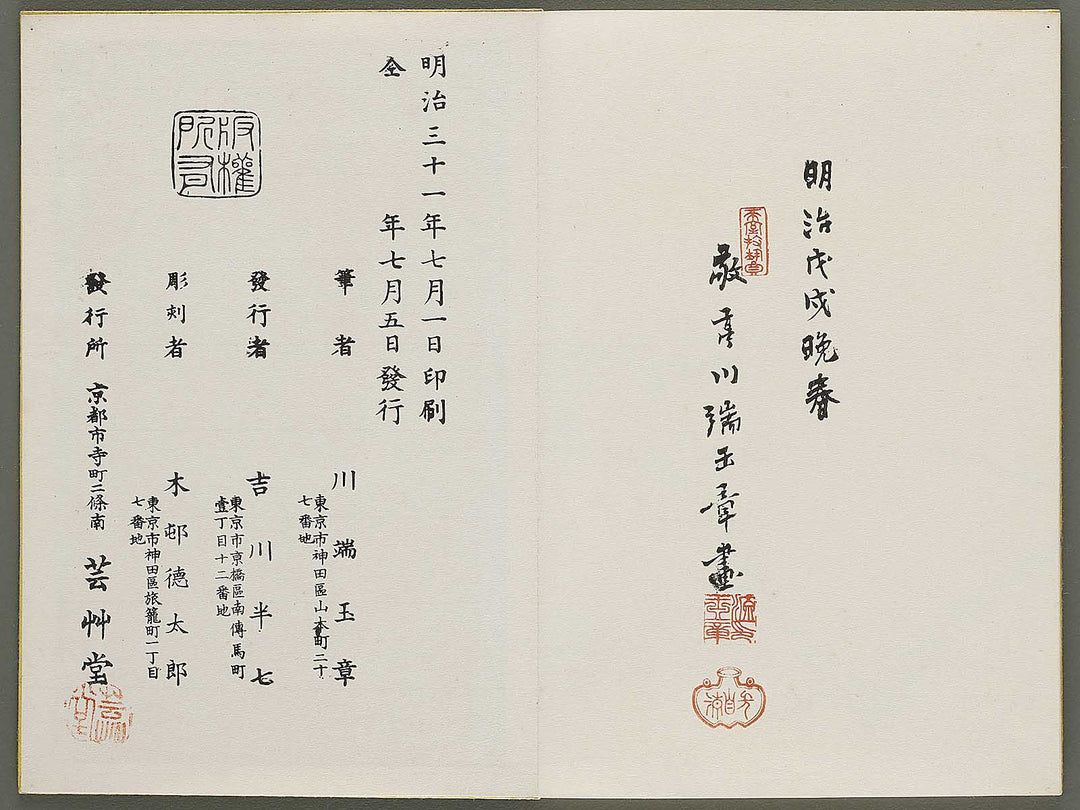 明治戊戌晩春
敬亭川端玉章畫
明治三十一年七月一日印刷
仝年七月五日發行
版權所有
筆者 川端玉章
東京市神田區山本町二十
七番地
發行者 吉川半七
東京市京橋區南傳馬町
壹丁目十二番地
彫刻者 木邨德太郎
東京市神田區旅籠町一丁目
七番地
發行所 京都市寺町二條南 芸艸堂
芸艸堂